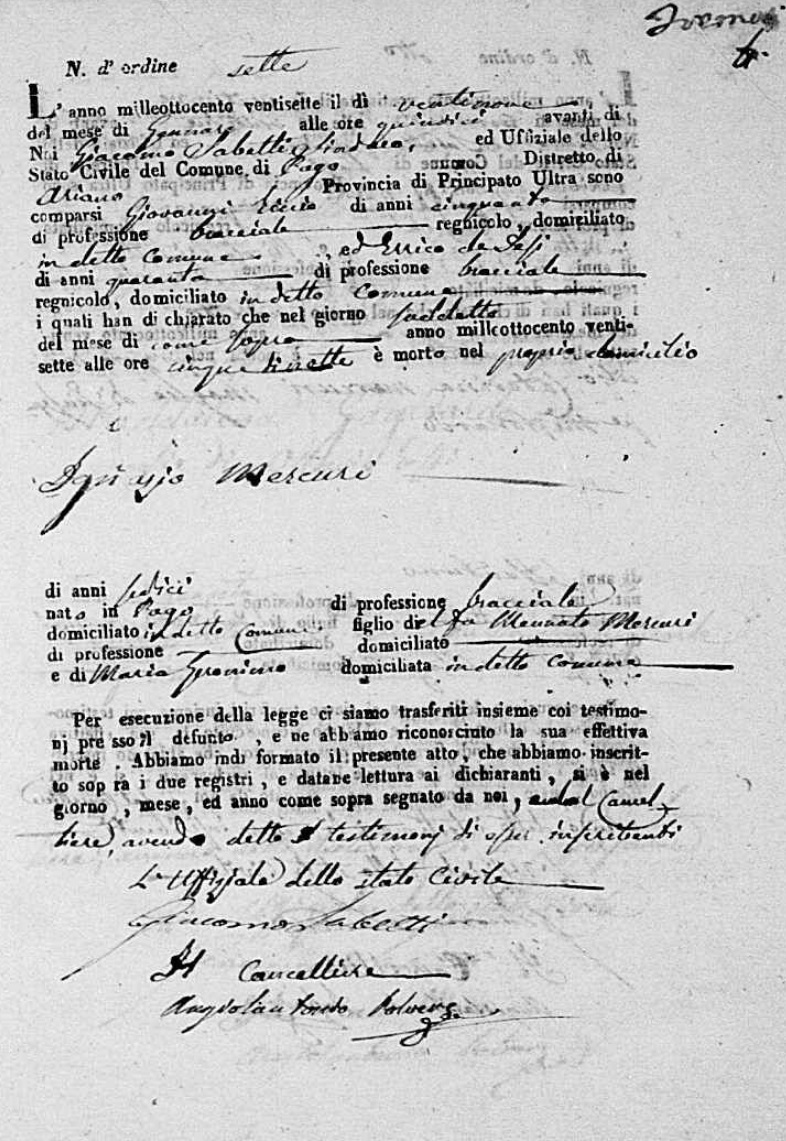 N. d' ordine sette
L' anno milleottocento ventisette il dì ventinove
del mese di Gennaro alle ore quindici avanti di
Noi Giacomo Sabetti Sindaco, ed Uffiziale dello
Stato Civile del Comune di Pago Distretto di
Ariano Provincia di Principato Ultra sono
comparsi Giovanni di anni cinquanta
di professione bracciale regnicolo, domiciliato
in detto Comune, ed Errico de
di anni quaranta di professione bracciale
regnicolo, domiciliato in detto Comune
i quali han di chiarato che nel giorno suddetto
del mese di come sopra anno millcottocento venti-
sette alle ore cinque è morto nel proprio domicilio
Ignazio Mercuri
di anni sedici
nato in Pago di professione bracciale
domiciliato in detto Comune figlio di Mennato Mercuri
di professione domiciliato
e di Maria domiciliata in detto Comune
Per esecuzione della legge ci siamo trasferiti insieme coi testimo-
nj presso il defunto, e ne abbiamo riconosciuto la sua effettiva
morte. Abbiamo indi formato il presente atto, che abbiamo inscrit-
to sopra i due registri, e datane lettura ai dichiaranti, si è nel
giorno, mese, ed anno come sopra segnato da noi, e dal Cancel-
liere, avendo detto i testimonj di esser
L' Uffiziale dello stato Civile
Giacomo Sabetti
Il Cancelliere